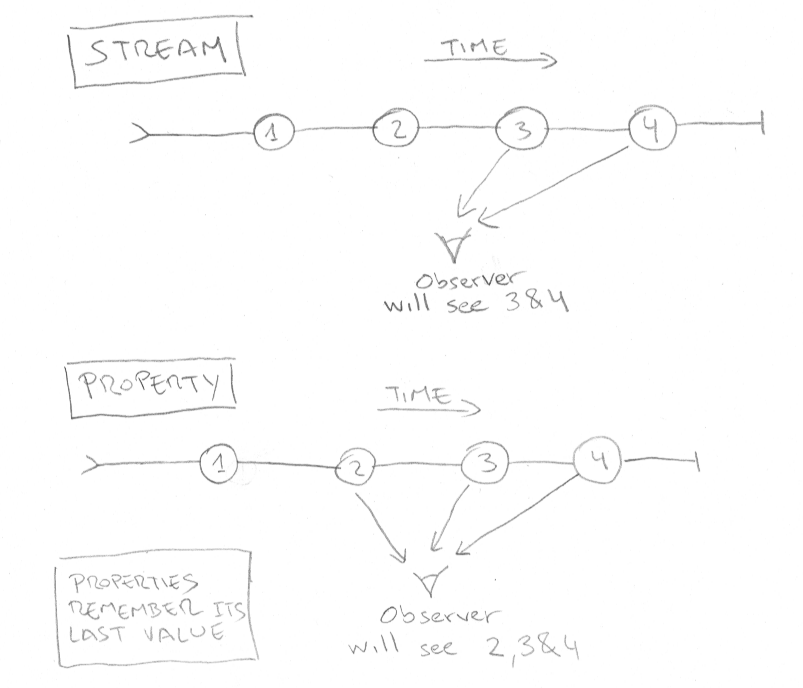 STREAM
TIME
1 2 3 4
Observer
will see 3&4
PROPERTY
TIME
1 2 3 4
PROPERTIES
REMEMBER ITS
LAST VALUE
Observer
will see 2,3&4